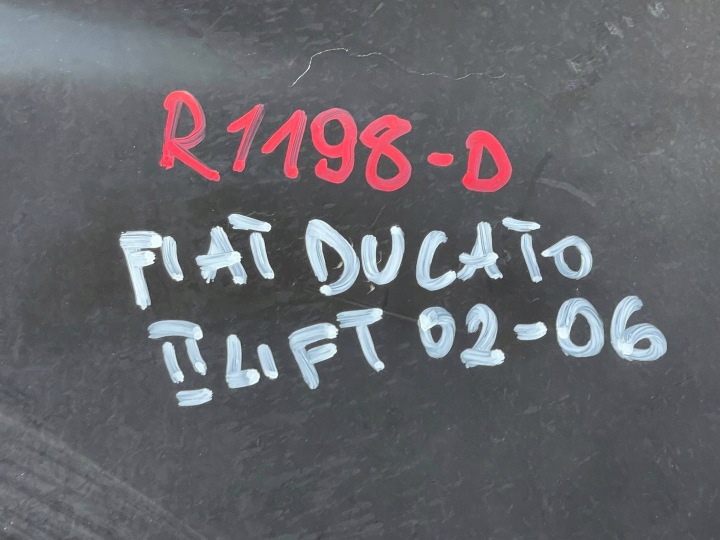 R1198-D
FIAT DUCATO
II LIFT 02-06